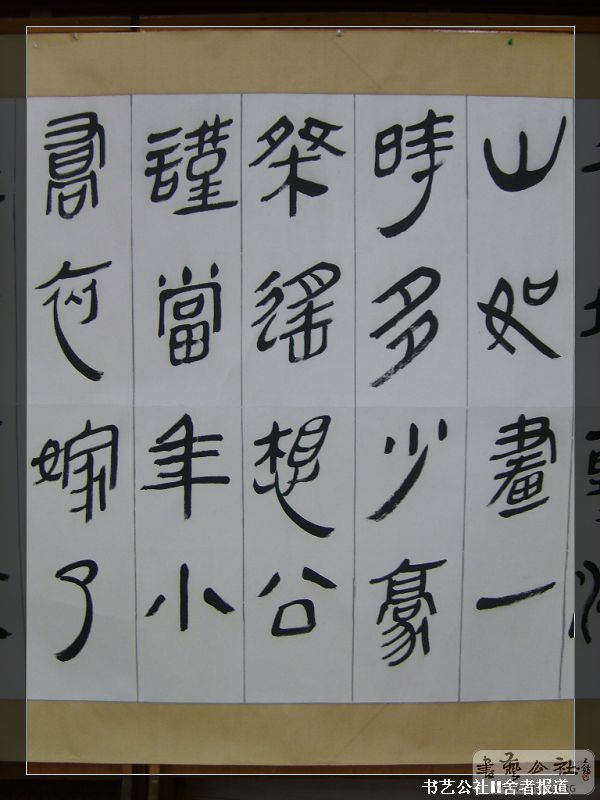 山如畫一
時多少豪
桀遙想公
謹當年小
喬初嫁了
書藝公社
书艺公社II舍者报道